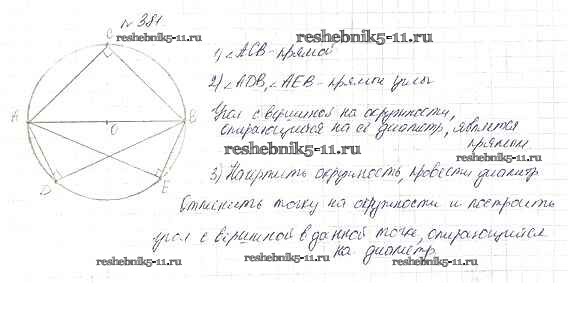 № 381
reshebnik5-11.ru
C
1) ∠ACB - прямой
2) ∠ADB, ∠AEB - прямые углы
A
O
B
Угол с вершиной на окружности,
опирающийся на её диаметр, является
прямым
reshebnik5-11.ru
reshebnik5-11.ru
D
E
3) Начертить окружность, провести диаметр
Отметить точку на окружности и построить
reshebnik5-11.ru
угол с вершиной в данной точке, опирающийся
на диаметр
reshebnik5-11.ru
reshebnik5-11.ru
reshebnik5-11.ru